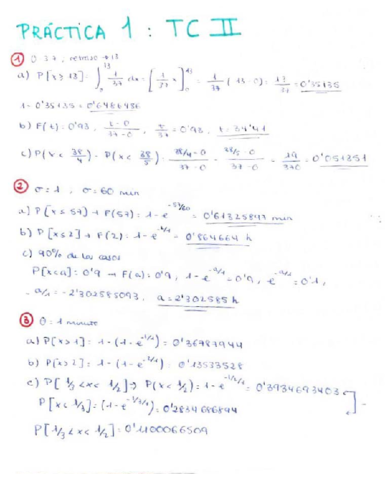 PRÁCTICA 1 : TC II
① 0-37, retraso → 13
a) P[x≥13] = ∫ 1/37 dx = [1/37 x] = 1/37 (13-0) = 13/37 = 0'35135
1-0'35135 = 0'6486486
b) F(t) = 0'93, x-0/37-0, x/37 = 0'93, x = 34'41
c) P(x < 38/4) - P(x < 38/5) = 38/4-0/37-0 - 38/5-0/37-0 = 19/370 = 0'051351
② σ=1, σ=60 min
a) P[x≤57] → F(57) = 1-e^-57/60 = 0'613258 min
b) P[x≤2] → F(2) = 1-e^-2/1 = 0'864664 h
c) 90% de los casos
P[x<a] = 0'9 → F(a) = 0'9, 1-e^-a/1 = 0'9, e^-a/1 = 0'1,
-a/1 = -2'302585093, a = 2'302585 h
③ θ=1 minuto
a) P[x>1] = 1-(1-e^-1/1) = 0'36787944
b) P[x>2] = 1-(1-e^-2/1) = 0'13533528
c) P[1/3<x<1/2] → P(x<1/2) = 1-e^-1/2/1 = 0'3934693403
P[x≤1/3] = (1-e^-1/3/1) = 0'2834686894
P[1/3<x<1/2] = 0'1100066509